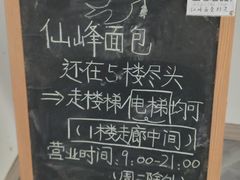 仙峰面包
还在5楼尽头
⇒走楼梯/电梯均可
(1楼走廊中间)
营业时间:9:00-21:00
(周二除外)